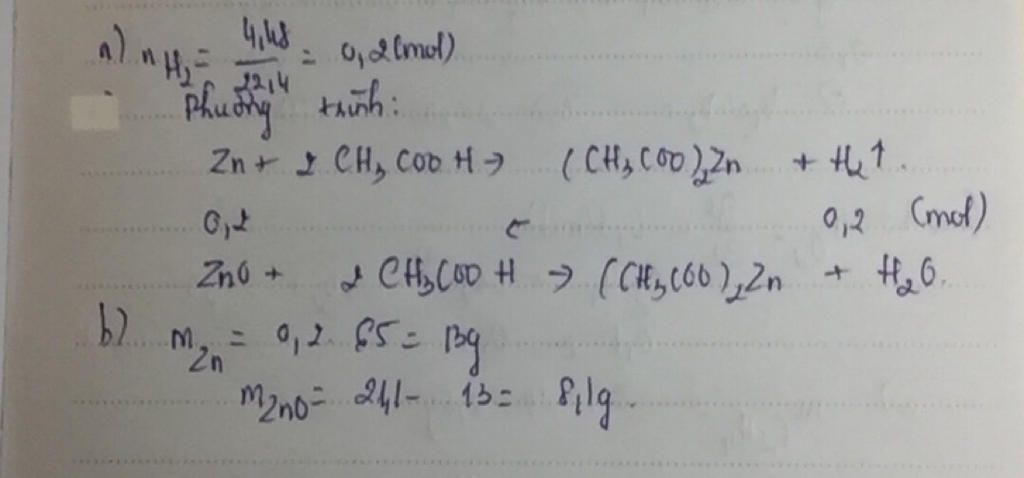 a) n H₂ = 4,48 / 22,4 = 0,2 (mol)
Phương trình:
Zn + 2 CH₃COOH → (CH₃COO)₂Zn + H₂↑.
0,2 ← 0,2 (mol)
ZnO + 2 CH₃COOH → (CH₃COO)₂Zn + H₂O.
b) m Zn = 0,2 . 65 = 13g
m ZnO = 21,1 - 13 = 8,1g.